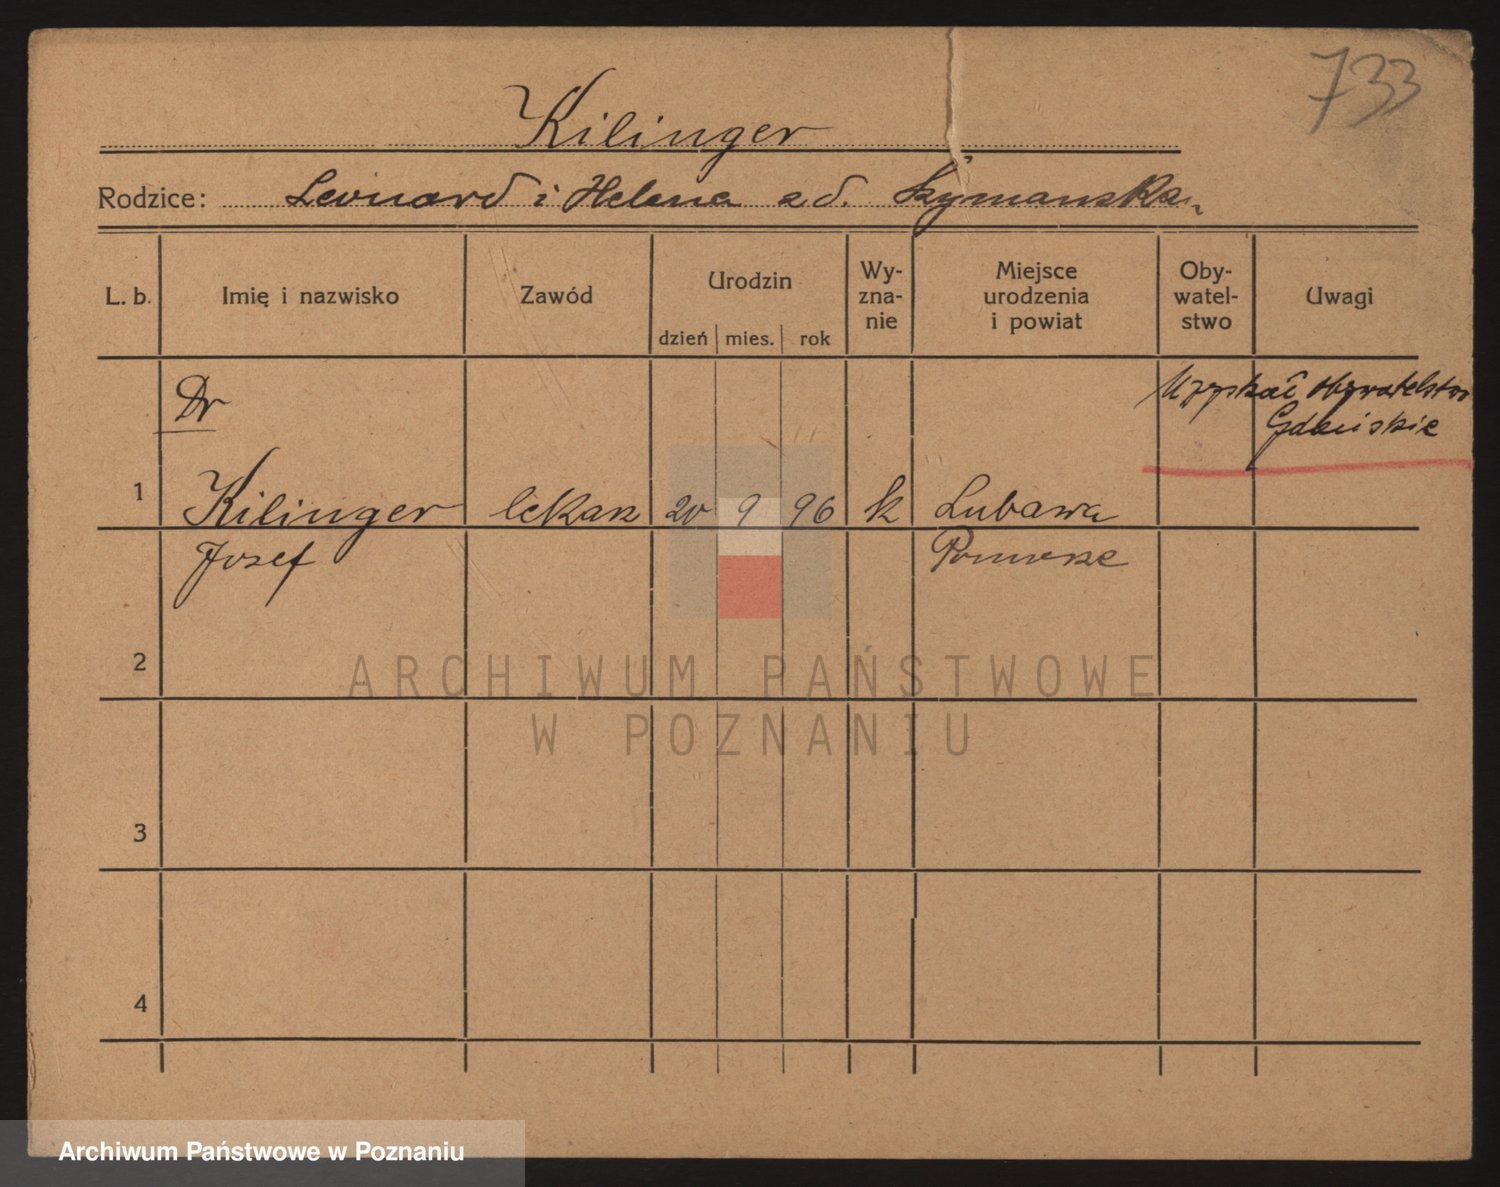 733
Kilinger
Rodzice: Leonard i Helena z d. Szymanska
L. b.
Imię i nazwisko
Zawód
Urodzin
dzień mies. rok
Wy-
zna-
nie
Miejsce
urodzenia
i powiat
Oby-
watel-
stwo
Uwagi
Dr
Uzyskał obywatelstwo
Gdańskie
1 Kilinger lekarz 20 9 96 k Lubawa
Josef Pomorze
2
3
4
ARCHIWUM PAŃSTWOWE
W POZNANIU
Archiwum Państwowe w Poznaniu